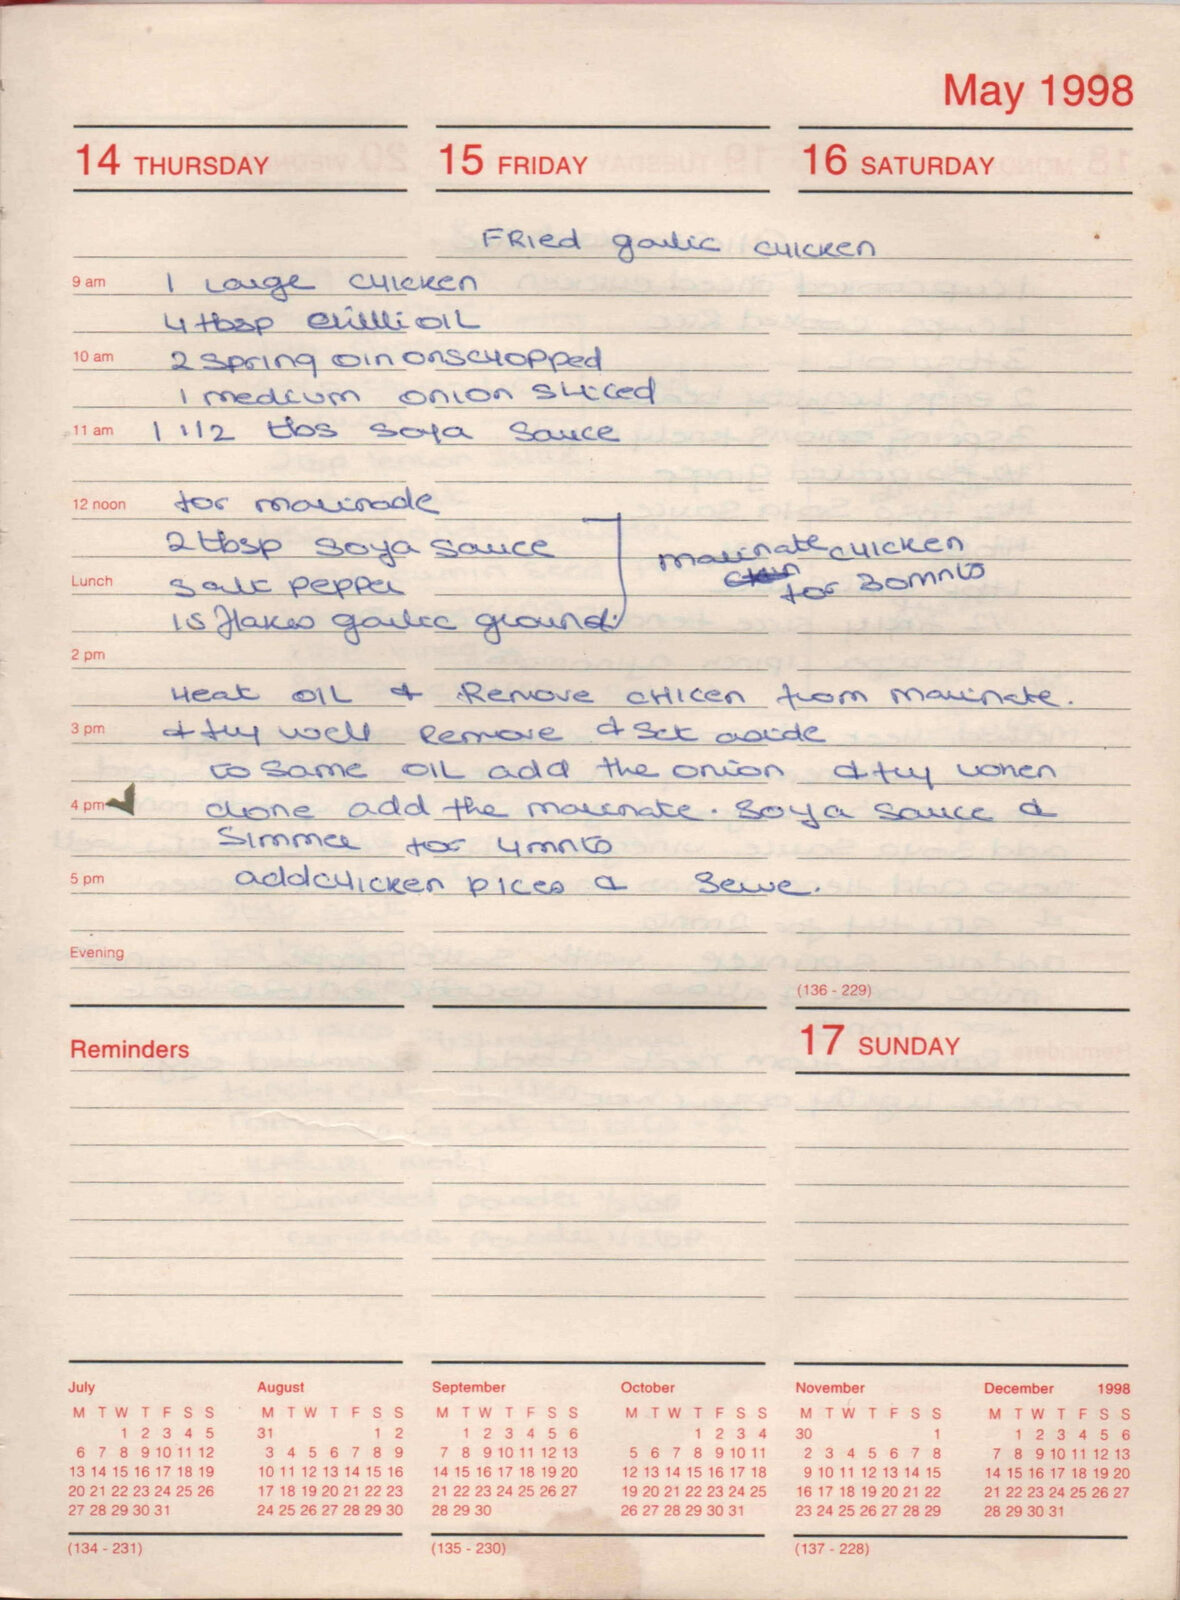 May 1998
14 THURSDAY 15 FRIDAY 16 SATURDAY
Fried garlic chicken
9 am 1 Large chicken
4 tbsp chilli oil
10 am 2 spring oinons chopped
1 medium onion sliced
11 am 1 1/2 tbs soya sauce
12 noon for marinade
2 tbsp soya sauce
marinate chicken
Lunch salt pepper
for 30mnts
15 flakes garlic ground
2 pm
Heat oil & Remove chicen from marinate.
3 pm & fry well Remove & set aside
to same oil add the onion & fry when
4 pm done add the marinate. Soya sauce &
Simmer for 4mnts
5 pm add chicken pices & serve.
Evening
(136 - 229)
Reminders
17 SUNDAY
July August September October November December 1998
M T W T F S S M T W T F S S M T W T F S S M T W T F S S M T W T F S S M T W T F S S
1 2 3 4 5 31 1 2 1 2 3 4 5 6 1 2 3 4 30 1 1 2 3 4 5 6
6 7 8 9 10 11 12 3 4 5 6 7 8 9 7 8 9 10 11 12 13 5 6 7 8 9 10 11 2 3 4 5 6 7 8 7 8 9 10 11 12 13
13 14 15 16 17 18 19 10 11 12 13 14 15 16 14 15 16 17 18 19 20 12 13 14 15 16 17 18 9 10 11 12 13 14 15 14 15 16 17 18 19 20
20 21 22 23 24 25 26 17 18 19 20 21 22 23 21 22 23 24 25 26 27 19 20 21 22 23 24 25 16 17 18 19 20 21 22 21 22 23 24 25 26 27
27 28 29 30 31 24 25 26 27 28 29 30 28 29 30 26 27 28 29 30 31 23 24 25 26 27 28 29 28 29 30 31
(134 - 231) (135 - 230) (137 - 228)